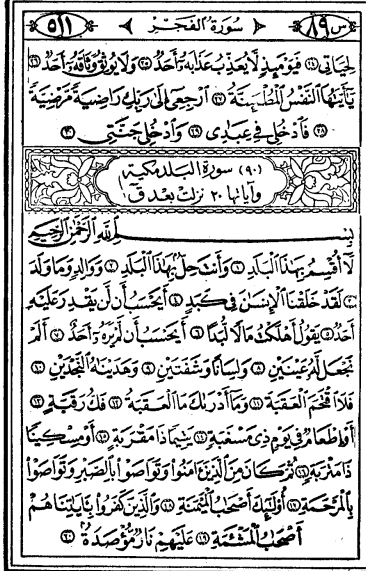 س ٨٩ سورة الفجر ٥١١
لِحَيَاتِى ٢٤ فَيَوْمَئِذٍ لَّا يُعَذِّبُ عَذَابَهُۥٓ أَحَدٌ ٢٥ وَلَا يُوثِقُ وَثَاقَهُۥٓ أَحَدٌ ٢٦
يَٰٓأَيَّتُهَا ٱلنَّفْسُ ٱلْمُطْمَئِنَّةُ ٢٧ ٱرْجِعِىٓ إِلَىٰ رَبِّكِ رَاضِيَةً مَّرْضِيَّةً
٢٨ فَٱدْخُلِى فِى عِبَٰدِى ٢٩ وَٱدْخُلِى جَنَّتِى ٣٠
(٩٠) سورة البلد مكية
وآياتها ٢٠ نزلت بعد ق
بِسْمِ ٱللَّهِ ٱلرَّحْمَٰنِ ٱلرَّحِيمِ
لَآ أُقْسِمُ بِهَٰذَا ٱلْبَلَدِ ١ وَأَنتَ حِلٌّۢ بِهَٰذَا ٱلْبَلَدِ ٢ وَوَالِدٍ وَمَا وَلَدَ
٣ لَقَدْ خَلَقْنَا ٱلْإِنسَٰنَ فِى كَبَدٍ ٤ أَيَحْسَبُ أَن لَّن يَقْدِرَ عَلَيْهِ
أَحَدٌ ٥ يَقُولُ أَهْلَكْتُ مَالًا لُّبَدًا ٦ أَيَحْسَبُ أَن لَّمْ يَرَهُۥٓ أَحَدٌ ٧ أَلَمْ
نَجْعَل لَّهُۥ عَيْنَيْنِ ٨ وَلِسَانًا وَشَفَتَيْنِ ٩ وَهَدَيْنَٰهُ ٱلنَّجْدَيْنِ ١٠
فَلَا ٱقْتَحَمَ ٱلْعَقَبَةَ ١١ وَمَآ أَدْرَىٰكَ مَا ٱلْعَقَبَةُ ١٢ فَكُّ رَقَبَةٍ ١٣
أَوْ إِطْعَٰمٌ فِى يَوْمٍ ذِى مَسْغَبَةٍ ١٤ يَتِيمًا ذَا مَقْرَبَةٍ ١٥ أَوْ مِسْكِينًا
ذَا مَتْرَبَةٍ ١٦ ثُمَّ كَانَ مِنَ ٱلَّذِينَ ءَامَنُوا۟ وَتَوَاصَوْا۟ بِٱلصَّبْرِ وَتَوَاصَوْا۟
بِٱلْمَرْحَمَةِ ١٧ أُو۟لَٰٓئِكَ أَصْحَٰبُ ٱلْمَيْمَنَةِ ١٨ وَٱلَّذِينَ كَفَرُوا۟ بِـَٔايَٰتِنَا هُمْ
أَصْحَٰبُ ٱلْمَشْـَٔمَةِ ١٩ عَلَيْهِمْ نَارٌ مُّؤْصَدَةٌۢ ٢٠